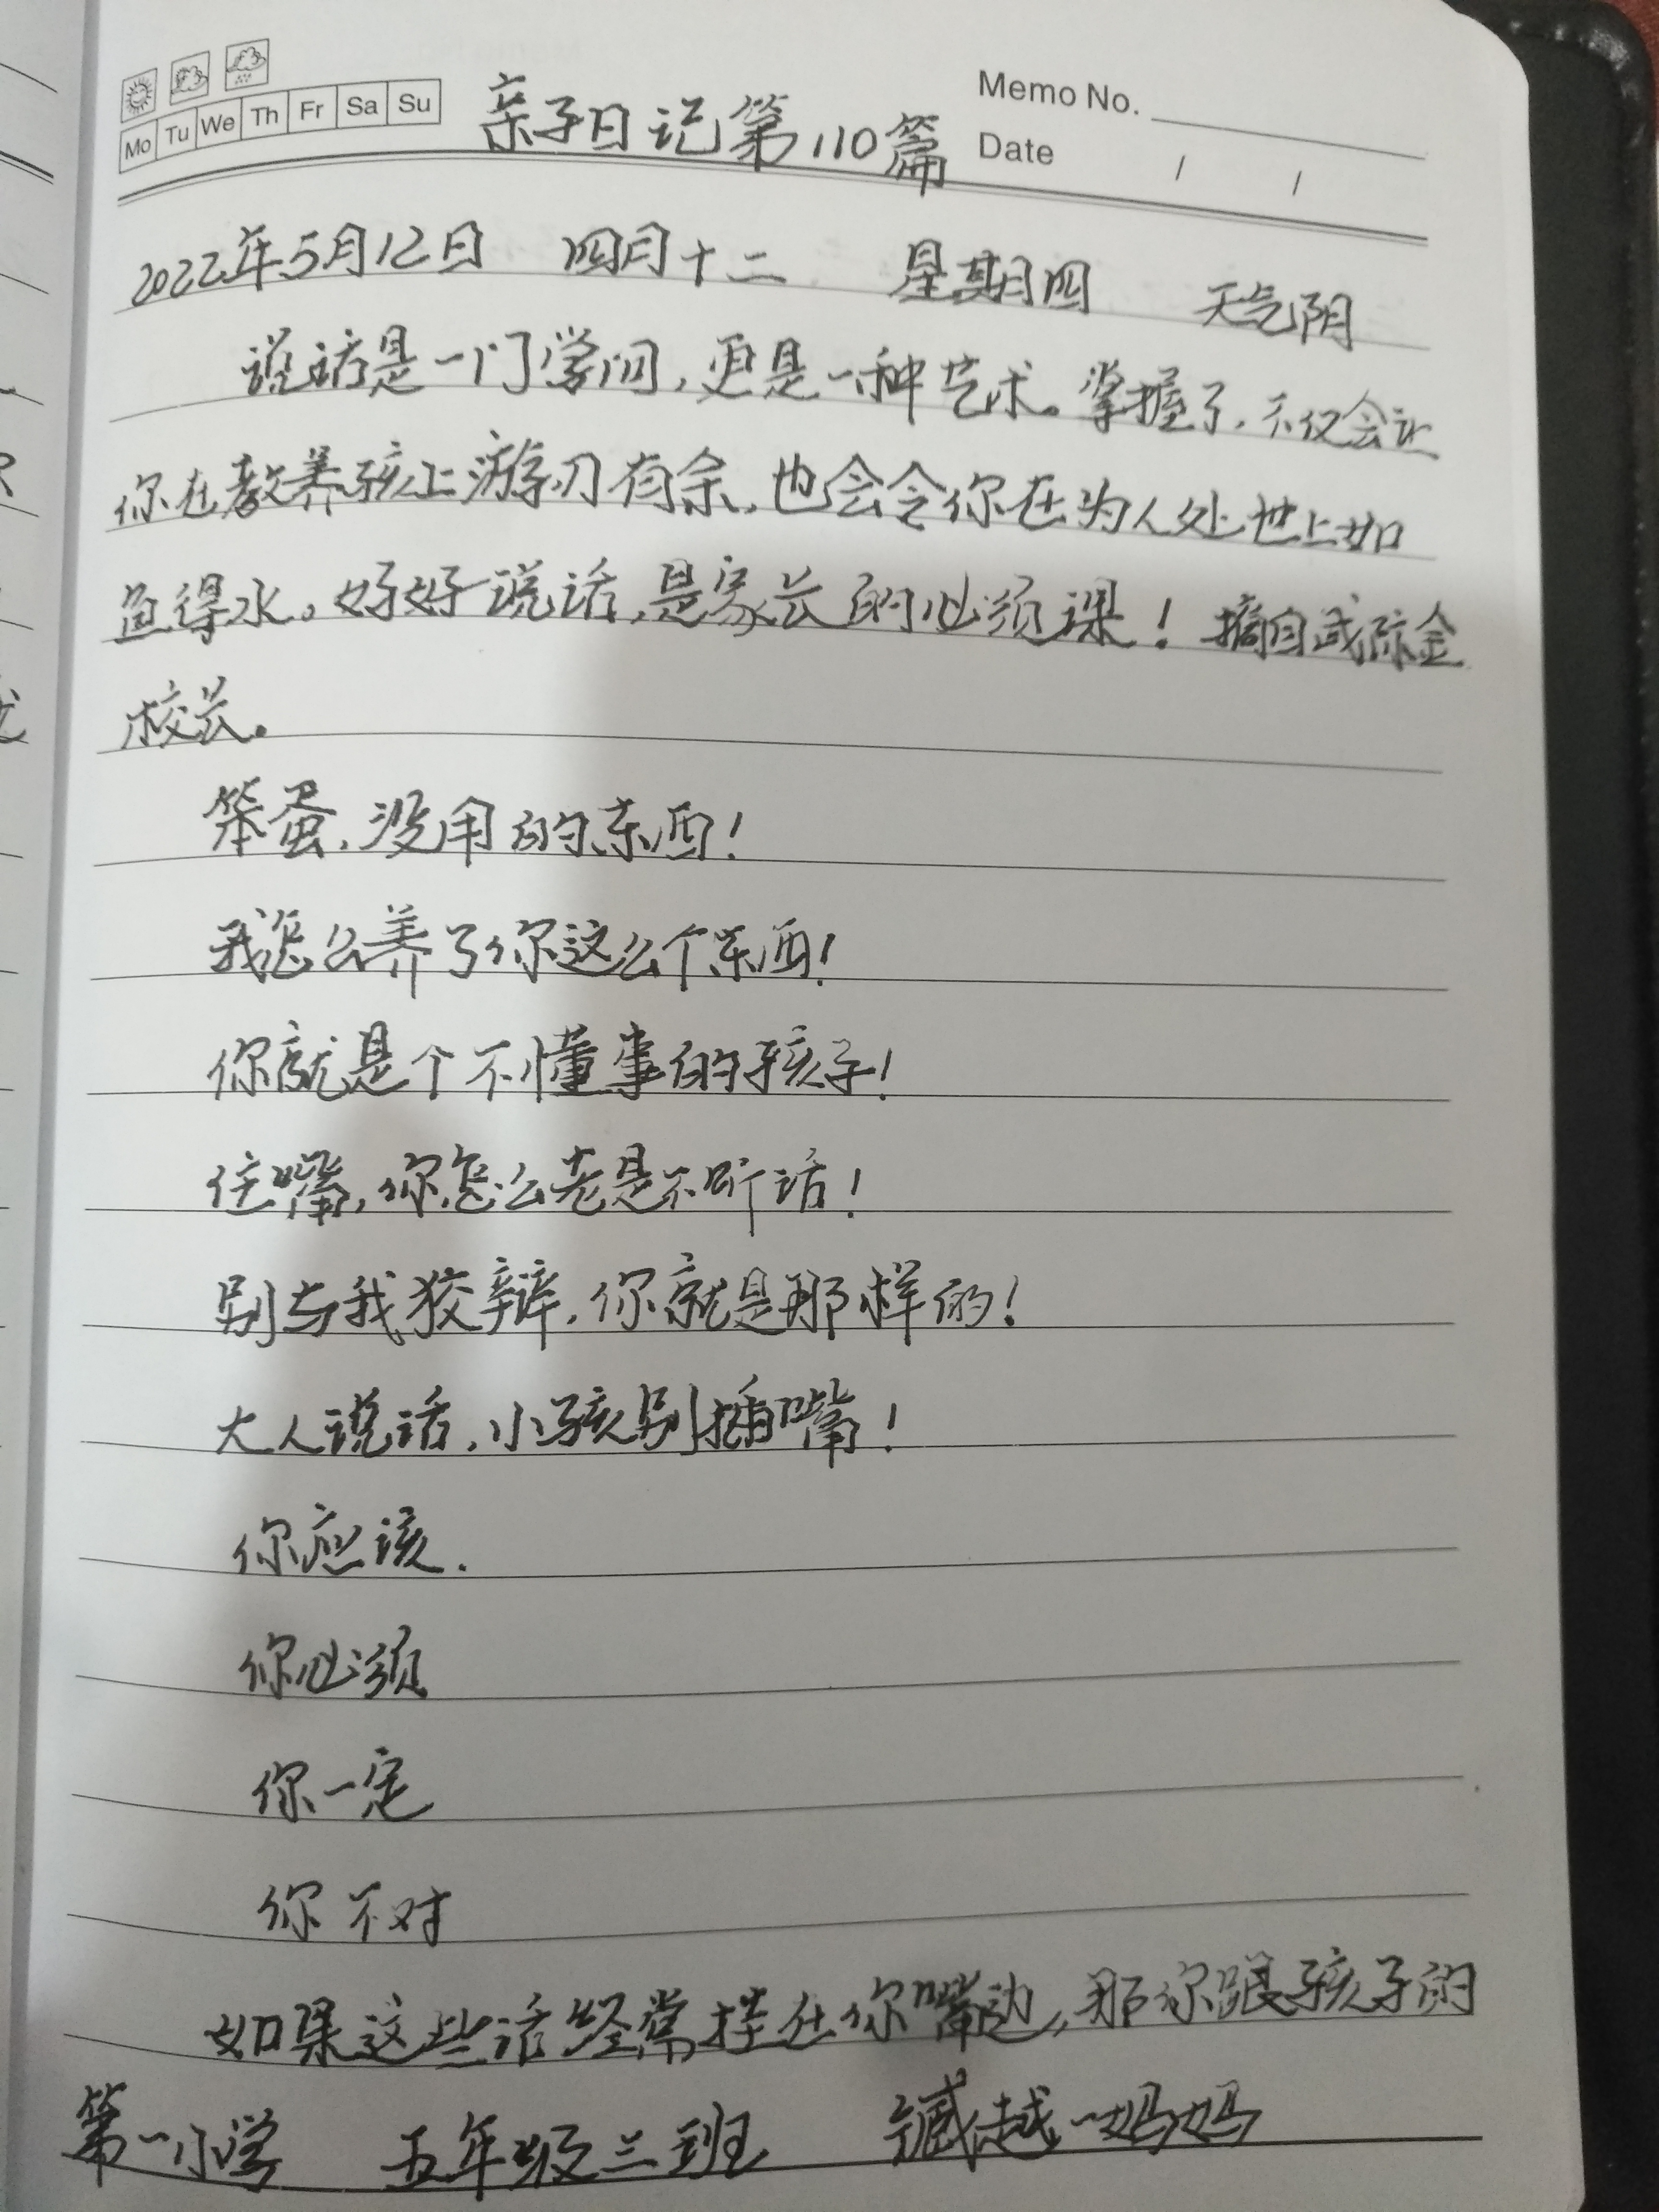 Mo Tu We Th Fr Sa Su
亲子日记第110篇
Memo No.
Date / /
2022年5月12日 四月十二 星期四 天气阴
说话是一门学问,更是一种艺术。掌握了,不仅会让
你在教养孩上游刃有余,也会令你在为人处世上如
鱼得水。好好说话,是家长的必须课!摘自戚际金
校长。
笨蛋,没用的东西!
我怎么养了你这么个东西!
你就是个不懂事的孩子!
住嘴,你怎么老是不听话!
别与我狡辩,你就是那样的!
大人说话,小孩别插嘴!
你应该.
你必须
你一定
你不对
如果这些话经常挂在你嘴边,那你跟孩子的
第一小学 五年级三班 越一妈妈